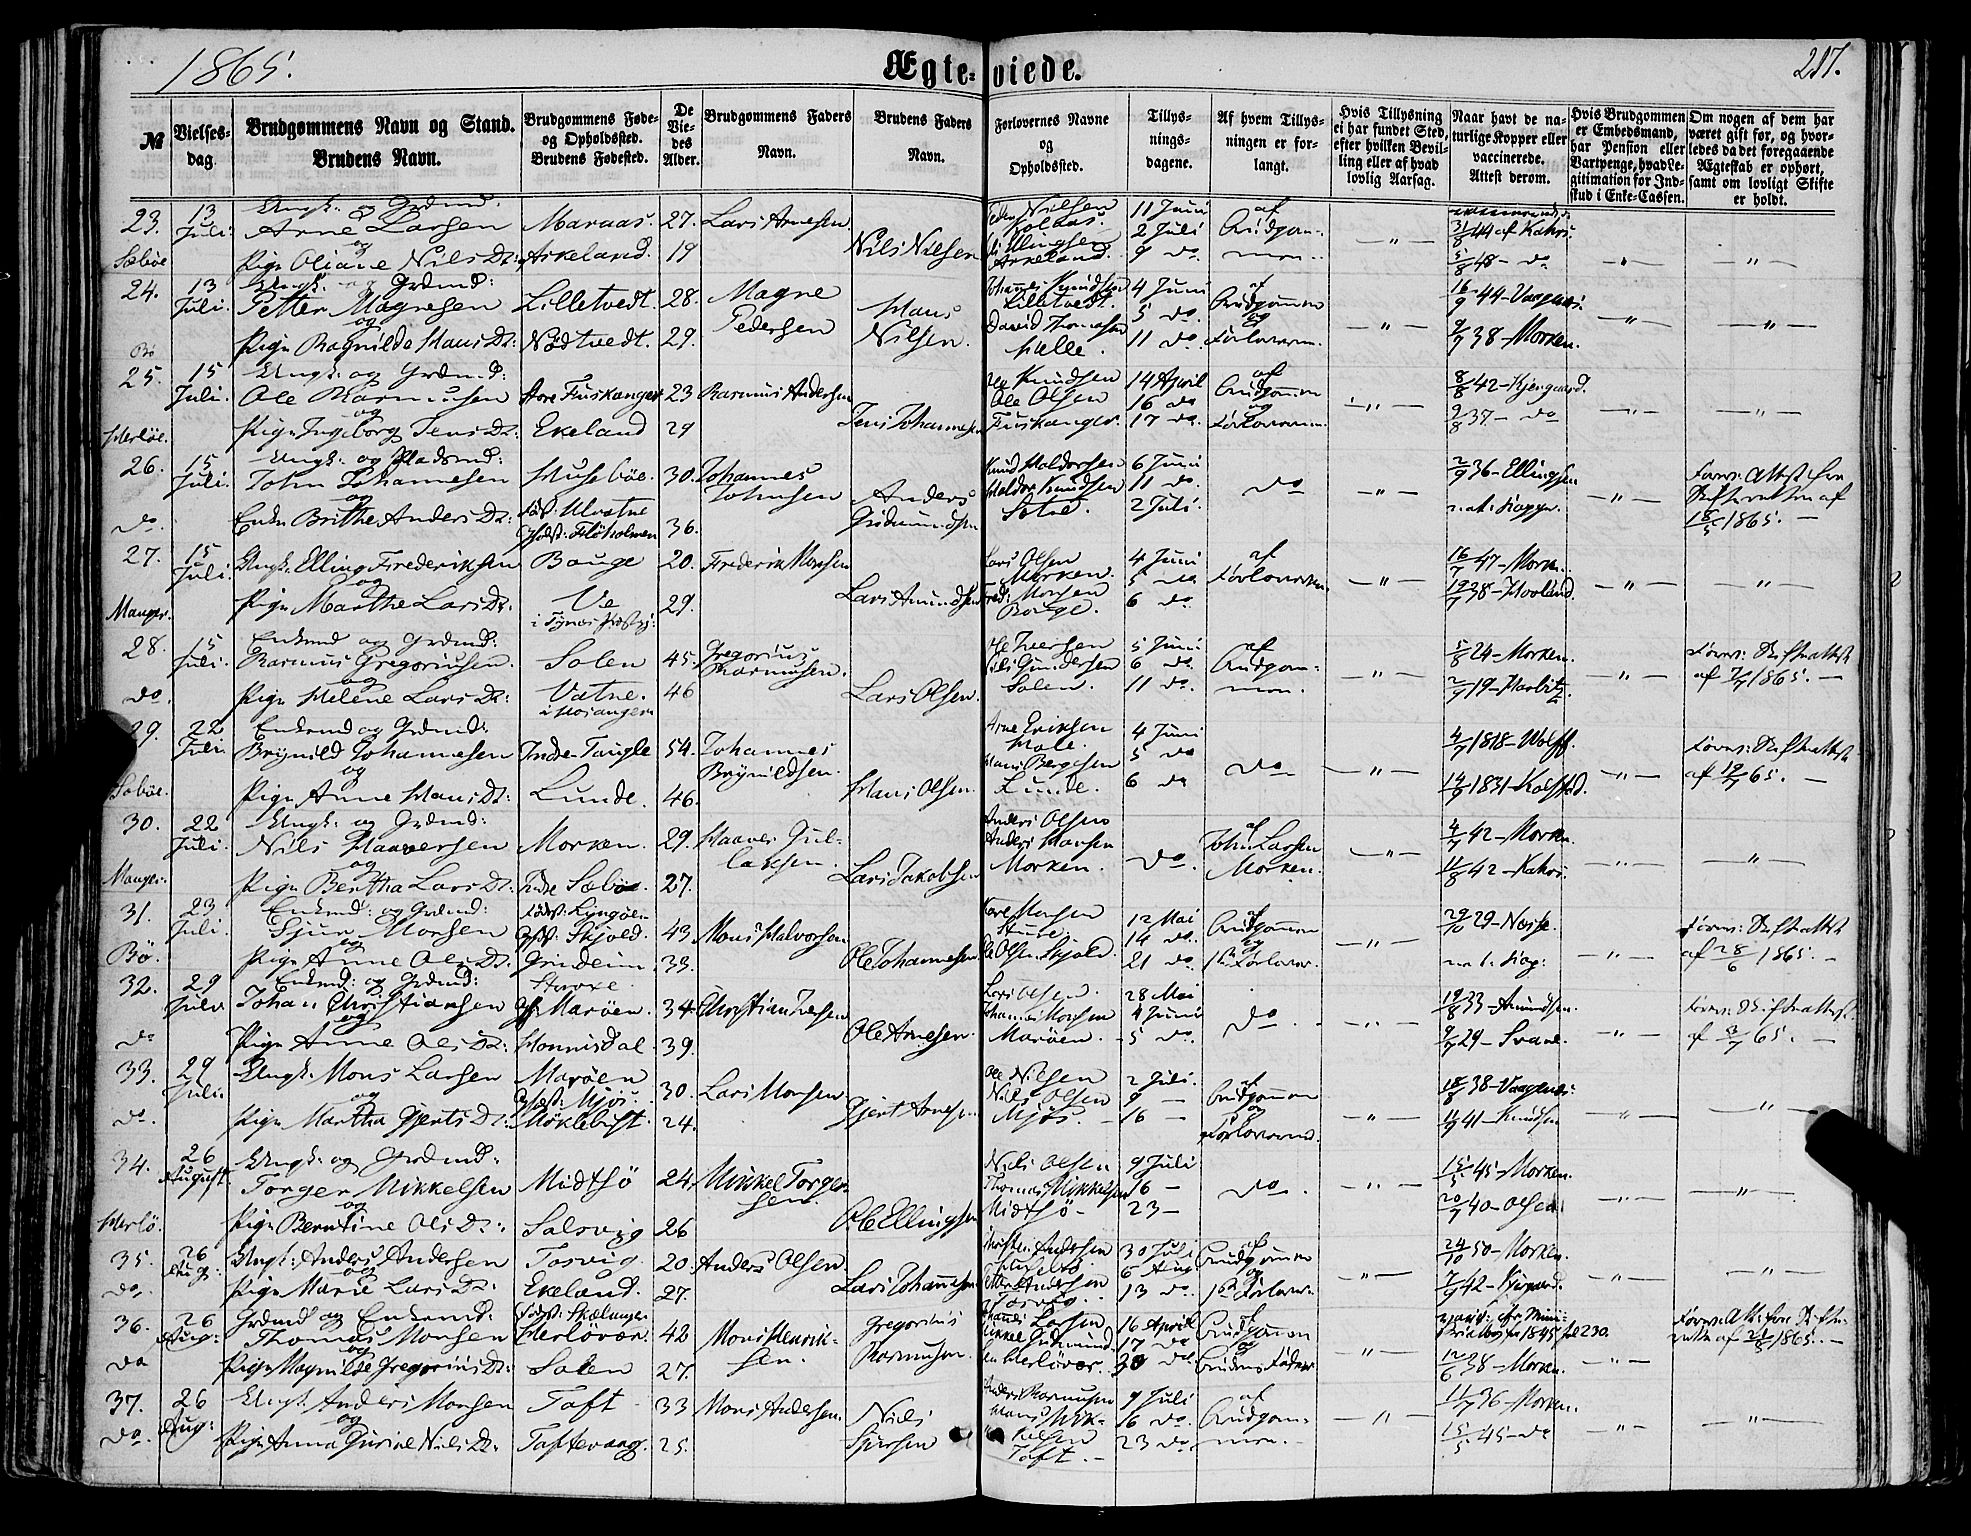 1865.
Ægteviede.
217.
№
Vielsesdag.
Brudgommens Navn og Stand.
Brudens Navn.
Brudgommens Føde- og Opholdssted.
Brudens Fødested.
De Viedes Alder.
Brudgommens Faders Navn.
Brudens Faders Navn.
Forlovernes Navne og Opholdssted.
Tillysningsdagene.
Af hvem Tillysningen er forlangt.
Hvis Tillysning ei har fundet Sted, efter hvilken Bevilling eller af hvad lovlig Aarsag.
Naar havt de naturlige Kopper eller vaccinerede. Attest derom.
Hvis Brudgommen er Embedsmand, har Pension eller Vartpenge, hvad Legitimation for Indskud i Enke-Cassen.
Om nogen af dem har været gift før, og hvorledes da det foregaaende Ægteskab er ophørt, samt om lovligt Skifte er holdt.
23. 13 Juli Ungk. og Grdmd: Arne Larsen Maraas. 27. Lars Arnesen 11 Juni af Brudgom- 31/8 44 af Kahrs.
Sæbøe og Pige Oliane Nilsdt: Askeland. 19 Nils Nielsen Askeland. 2 Juli 9 do men. 5/8 48 - do
24. 13 Juli. Ungk. og Grdmd: Petter Magnesen Lilletvedt. 28. Magne Pedersen Johannes Knudsen Lilletvedt. 4 Juni 5 do af Brudgommen 16/9 44 - Vaagenes.
Bø og Pige Ragnilde Hansdt: Nødtvedt. 29. Hans Nilsen. David Thomasen Helle. 11 do og Forloverne. 9/7 38 - Morken.
25. 15 Juli. Ungk: og Grdmd: Ole Rasmusen Store Fuskanger 23 Rasmus Andersen Ole Knudsen Ole Olsen 14 April 16 do af Brudgommen 8/8 42 - Kjergaard.
Herløe. og Pige Ingeborg Jensdt: Ekeland 29 Jens Johannesen Fuskanger. 17 do og Forloverne 9/8 37 - do
26. 15 Juli. Ungk: og Pladsmd: John Johannesen Husebøe. 30. Johannes Johnsen Knud Haldorsen Haldor Knudsen 6 Juni 11 do do 2/9 36 - Ellingsen Forev: Attest fra Skifteretten af
do. og Enke Brithe Andersdt: Født: Ulvatne Opholdst: Fløholmen 36. Anders Gudmundsen Sætre. 2 Juli. n. at. Kopper. 18/5 1865. -
27. 15 Juli. Ungk: Elling Frederiksen Bauge 20. Frederik Monsen Lars Olsen Morken. 4 Juni 5 do af Forloverne 16/7 47 - Morken.
Manger. og Pige Marthe Larsdt: Ve i Fjnæs Præstgj: 29. Lars Amundsen Fred: Monsen Bauge. 6 do 19/7 38 - Hovland.
28. 15 Juli. Enkemd og Grdmd: Rasmus Gregoriusen. Solen 45. Gregorius Rasmusen. Ole Iversen Nils Gundersen 5 Juni 6 do af Brudgom- 5/8 24 - Morken. Forev: Skifteattest
do. og Pige Helene Larsdt: Vatne. i Hosanger 46 Lars Olsen. Solen. 11 do. men. 2/9 19 - Harbitz. af 7/7 1865. -
29. 22 Juli Enkemd og Grdmd: Brynild Johannesen Indre Taugle 54. Johannes Brynildsen. Arne Eriksen Hole. 4 Juni 5 do do 4/7 1818 - Wolff. Forev: Skifteattest
Sæbøe. og Pige Anne Hansdt: Lunde. 46. Hans Olsen. Hans Bergesen Lunde. 6 do 14/9 1831 - Kolstad. af 19/7 65. -
30. 22 Juli. Ungk: og Grdmd: Nils Haaversen Morken. 29. Haaver Gullaksen. Anders Olsen Anders Hansen do af John Larsen 4/7 42 - Morken.
Manger. og Pige Bertha Larsdt: Indre Sæbøe. 27. Lars Jakobsen Morken. Morken. 11/8 42 - Kahrs.
31. 23 Juli. Enkemd: og Grdmd: Sjur Monsen Født: Lyngøen Opst: Skjold. 43 Mons Halvorsen Monsen 12 Mai 14 do. af Brudgommen 29/10 29 - Nesse. Forev: Skifteattest
Bø. og Pige Anne Olsdt. Grudeim 33. Ole Johannesen Ole Olsen Skjold. 21 do. og 1ste Forlover. n. Kop: af 28/6 1865. -
32. 29 Juli Enkemd: og Grdmd: Johan Christiansen Opst: Marøen. 34. Christian Iversen Lars Olsen. Johannes Monsen 28 Mai 4 Juni do. 19/8 33 - Amundsen. Forev: Skifteattest
do og Pige Anne Olsdt: Hannisdal. 39. Ole Arnesen. Marøen. 5 do. 9/9 29 - Svane. af 3/7 65. -
33. 29 Juli. Ungk: Mons Larsen Marøen Opst: Mjøs. 30. Lars Monsen Ole Nilsen Nils Olsen 2 Juli. 9 - af Brudgommen 18/8 38 - Vaagenes.
do. og Pige Martha Gjertsdt: Møklebust. 24. Gjert Arnesen Mjøs. 16 - og Forloverne. 11/9 41 - Knudsen
34. 26 August Ungk: og Grdmd: Torger Mikkelsen Midtsø 24. Mikkel Torgersen Nils Olsen Thomas Mikkelsen 9 Juli 16 - do. 15/5 45 - Morken.
Herlø. og Pige Berntine Olsdt: Salsvig 26 Ole Ellingsen Midtsø - 23 - 20/7 40 - Olsen.
35. 26 Aug: Ungk: Anders Andersen Tosvig. 20. Anders Olsen. Andersen 30 Juli 6 Aug af Brudgommen 24/10 50 - Morken.
do. og Pige Marie Larsdt: Ekeland. 27. Lars Johannesen Petter Andersen Tosvig. 13 do. og 1ste Forlover. 7/9 42 - Kjergaard.
36. 26 Aug: Grdmd og Enkemd: Thomas Monsen Født: Skjelanger Herløvær. 42 Mons Henriksen. Larsen 16 April 17 do af Brudgommen 1845 fol 230. Forev: Attest fra Skifteretten af 21/8 1865. -
do og Pige Magnilde Gregoriusdt: Solen 27. Gregorius Rasmusen. Herløvær. 30 do og Brudens Fader. 12/6 38 - Morken.
37. 26 Aug: Ungk. Anders Monsen Toft 33 Mons Andersen. Anders Rasmusen Hans Mik- 9 Juli 16 do. af Brudgom- 11/7 36 - Morken.
do. og Pige Anna Gurine Nilsdt: Toftevaag. 25. Niels Sjursen kelsen Toft. - 23 do men. 15/5 45 - do